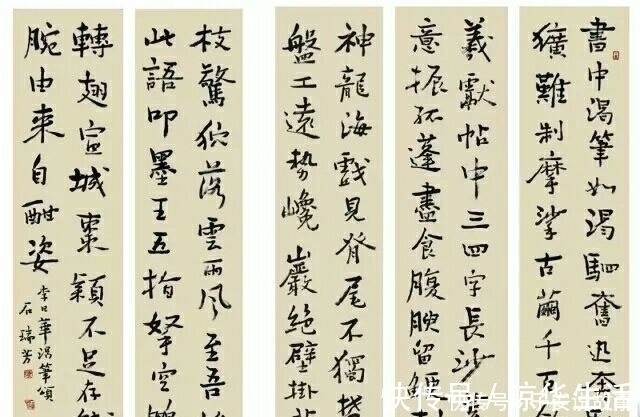 書中渴筆如渴驷奮迅奔
獷難制摩挲古繭千百
羲獻帖中三四字長沙
意振孤蓬盡食腹腴留
神龍海戲見脊尾不獨
盤工遠勢巉巖絕壁掛
枝驚猊落雲雨風至吾
此語叩墨王五指拏空
轉翅宣城棗穎不足存
腕由来自酣姿
李日華渴筆頌
石瑞芳
快传号